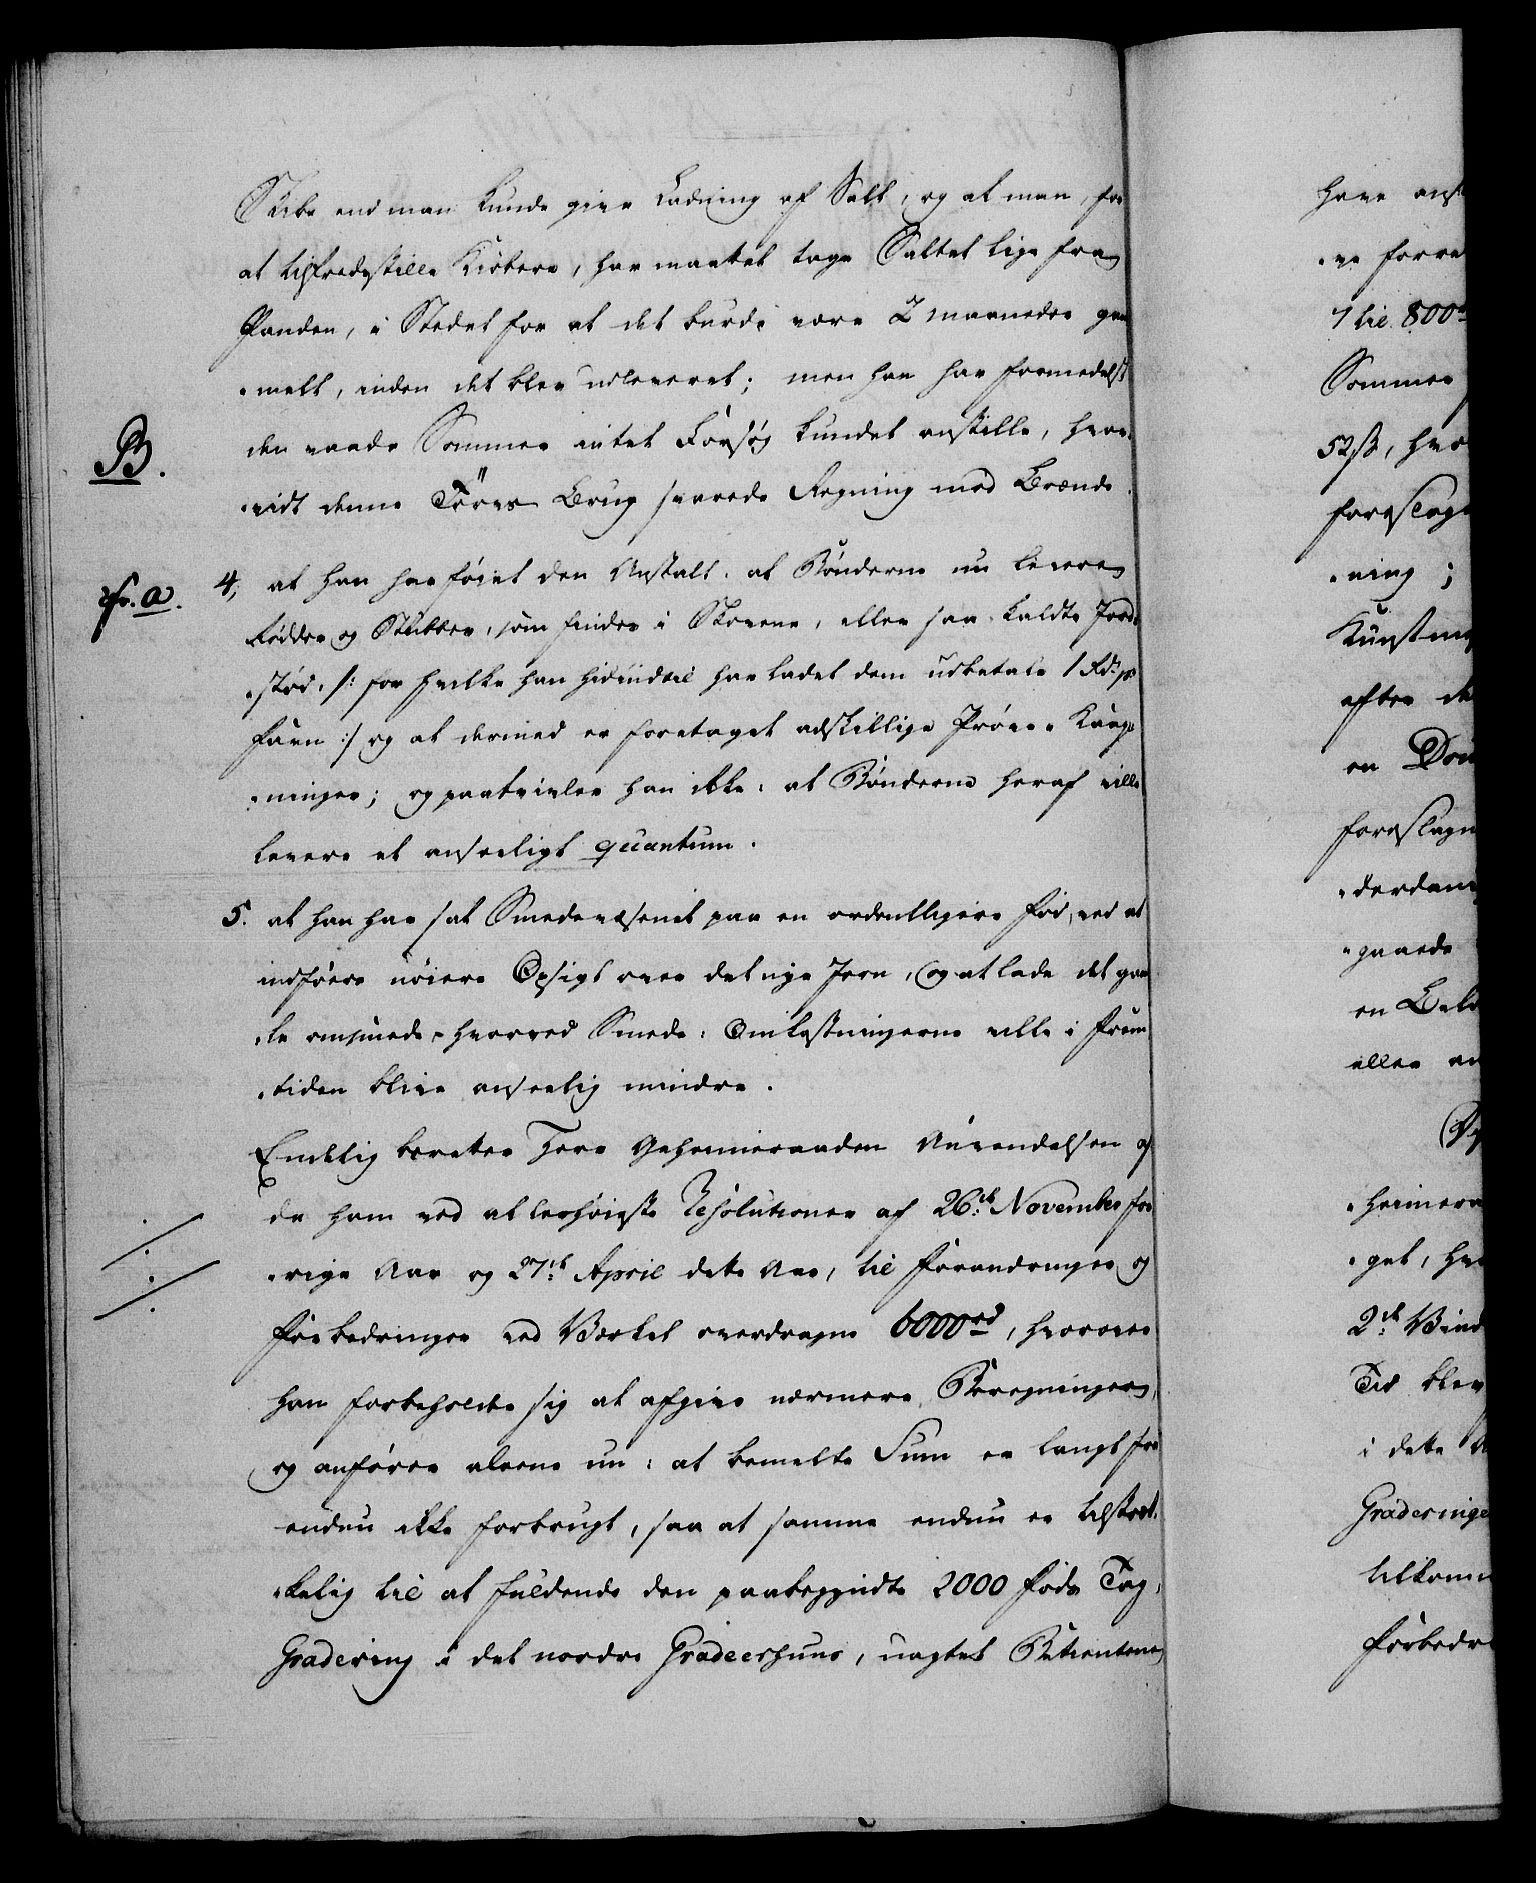 Skibe end man kunde give Ladning af Salt, og at man, for
at tilfredsstille Kiöbere, har maattet tage Saltet lige fra
Panden, i Stedet for at det burde være 2 maaneder gam
melt, inden det blev udleveret; men han har formedelst
den vaade Sommer intet Forsøg kundet anstille, hvor
B.
vidt denne Törvs Brug svarede Regning med Brænde
cfr. a.
4, at han har føiet den Anstalt, at Bönderne nu levere
Rødder og Stubber, som findes i Skovene, eller saa kaldte Jord
stød, /: for hvilke han hidindtil har ladet dem udbetale 1 Rdr pr
Favn :/ og at dermed er foretaget adskillige Pröve Kaag
ninger; og paatvivler han ikke, at Bönderne heraf ville
levere et anseeligt quantum.
5. at han har sat Smedevæsenet paa en ordentligere Fod, ved at
indføre nöiere Opsigt over det nye Jern, og at lade det gam
le omsmede, hvorved Smede Omkostningerne ville i Frem
tiden blive anseelig mindre.
Endelig beretter Herr Geheimeraaden Anvendelsen af
de ham ved allerhöieste Resolutioner af 26de November for
rige Aar og 27de April dette Aar, til Forandringer og
Forbedringer ved Værket overdragne 6000 rd, hvorover
han forbeholdte sig at afgive nærmere Beregninger,
og anförer alene nu: at bemelte Sum er langt fra
endnu ikke forbrugt, saa at samme endnu er tilstræk
kelig til at fuldende den paabegyndte 2000 Fods Tag
Gradering i det nordre Gradeerhuus, uagtet Betienterne
have anst
ve forre
7 til 800
Sommer
52ß, hvo
foreslag
ning;
Kunstme
efter de
en Dou
foreslagn
derdam
gaaede
en
eller an
heimera
get, hv
2de Vind
Tid blev
i dette
Graderinge
tilkomm
Forbedr